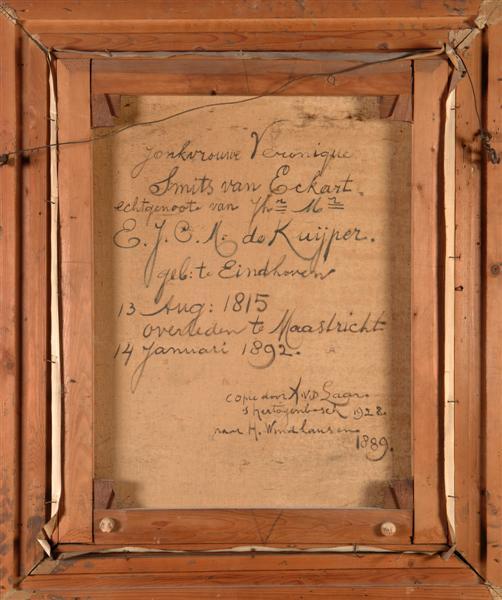 Jonkvrouwe Veronique
Smits van Eckart.
echtgenoote van Jhr Mr
E. J. C. M. de Kuijper.
geb: te Eindhoven
13 Aug: 1815
overleden te Maastricht
14 Januari 1892.
copie door A.v.d. Laar.
s Hertogenbosch 1928.
naar H. Windhausen
1889.